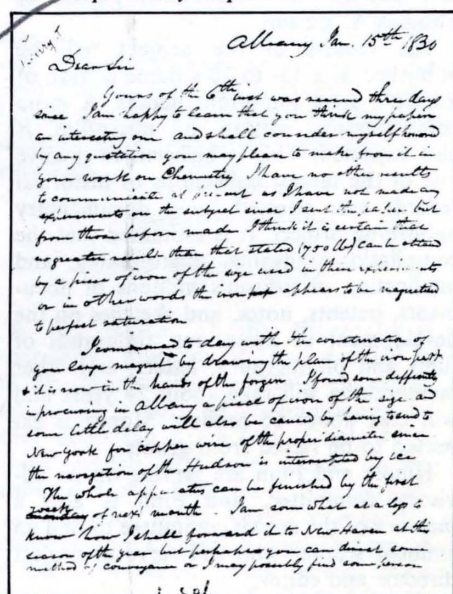 Albany Jan. 15th 1830
Dear Sir
Yours of the 6th inst was received three days
since I am happy to learn that you think my paper
an interesting one and shall consider myself honored
by any quotation you may please to make from it in
your work on Chemistry. I have no other results
to communicate at present as I have not made any
experiments on the subject since I sent the paper but
from those before made I think it is certain that
no greater result than that stated (750 lbs) can be obtained
by a piece of iron of the size used in these experiments
or in other words the iron appears to be magnetised
to perfect saturation.
I commenced to day with the construction of
your large magnet by drawing the plan of the iron part
& it is now in the hands of the forger. I found some difficulty
in procuring in Albany a piece of iron of the size and
some little delay will also be caused by having to send to
New York for copper wire of the proper diameter since
the navigation of the Hudson is interrupted by ice
The whole apparatus can be finished by the first
week
of next month. I am somewhat at a loss to
know how I shall forward it to New Haven at this
season of the year but perhaps you can direct some
method of conveyance or I may possibly find some person